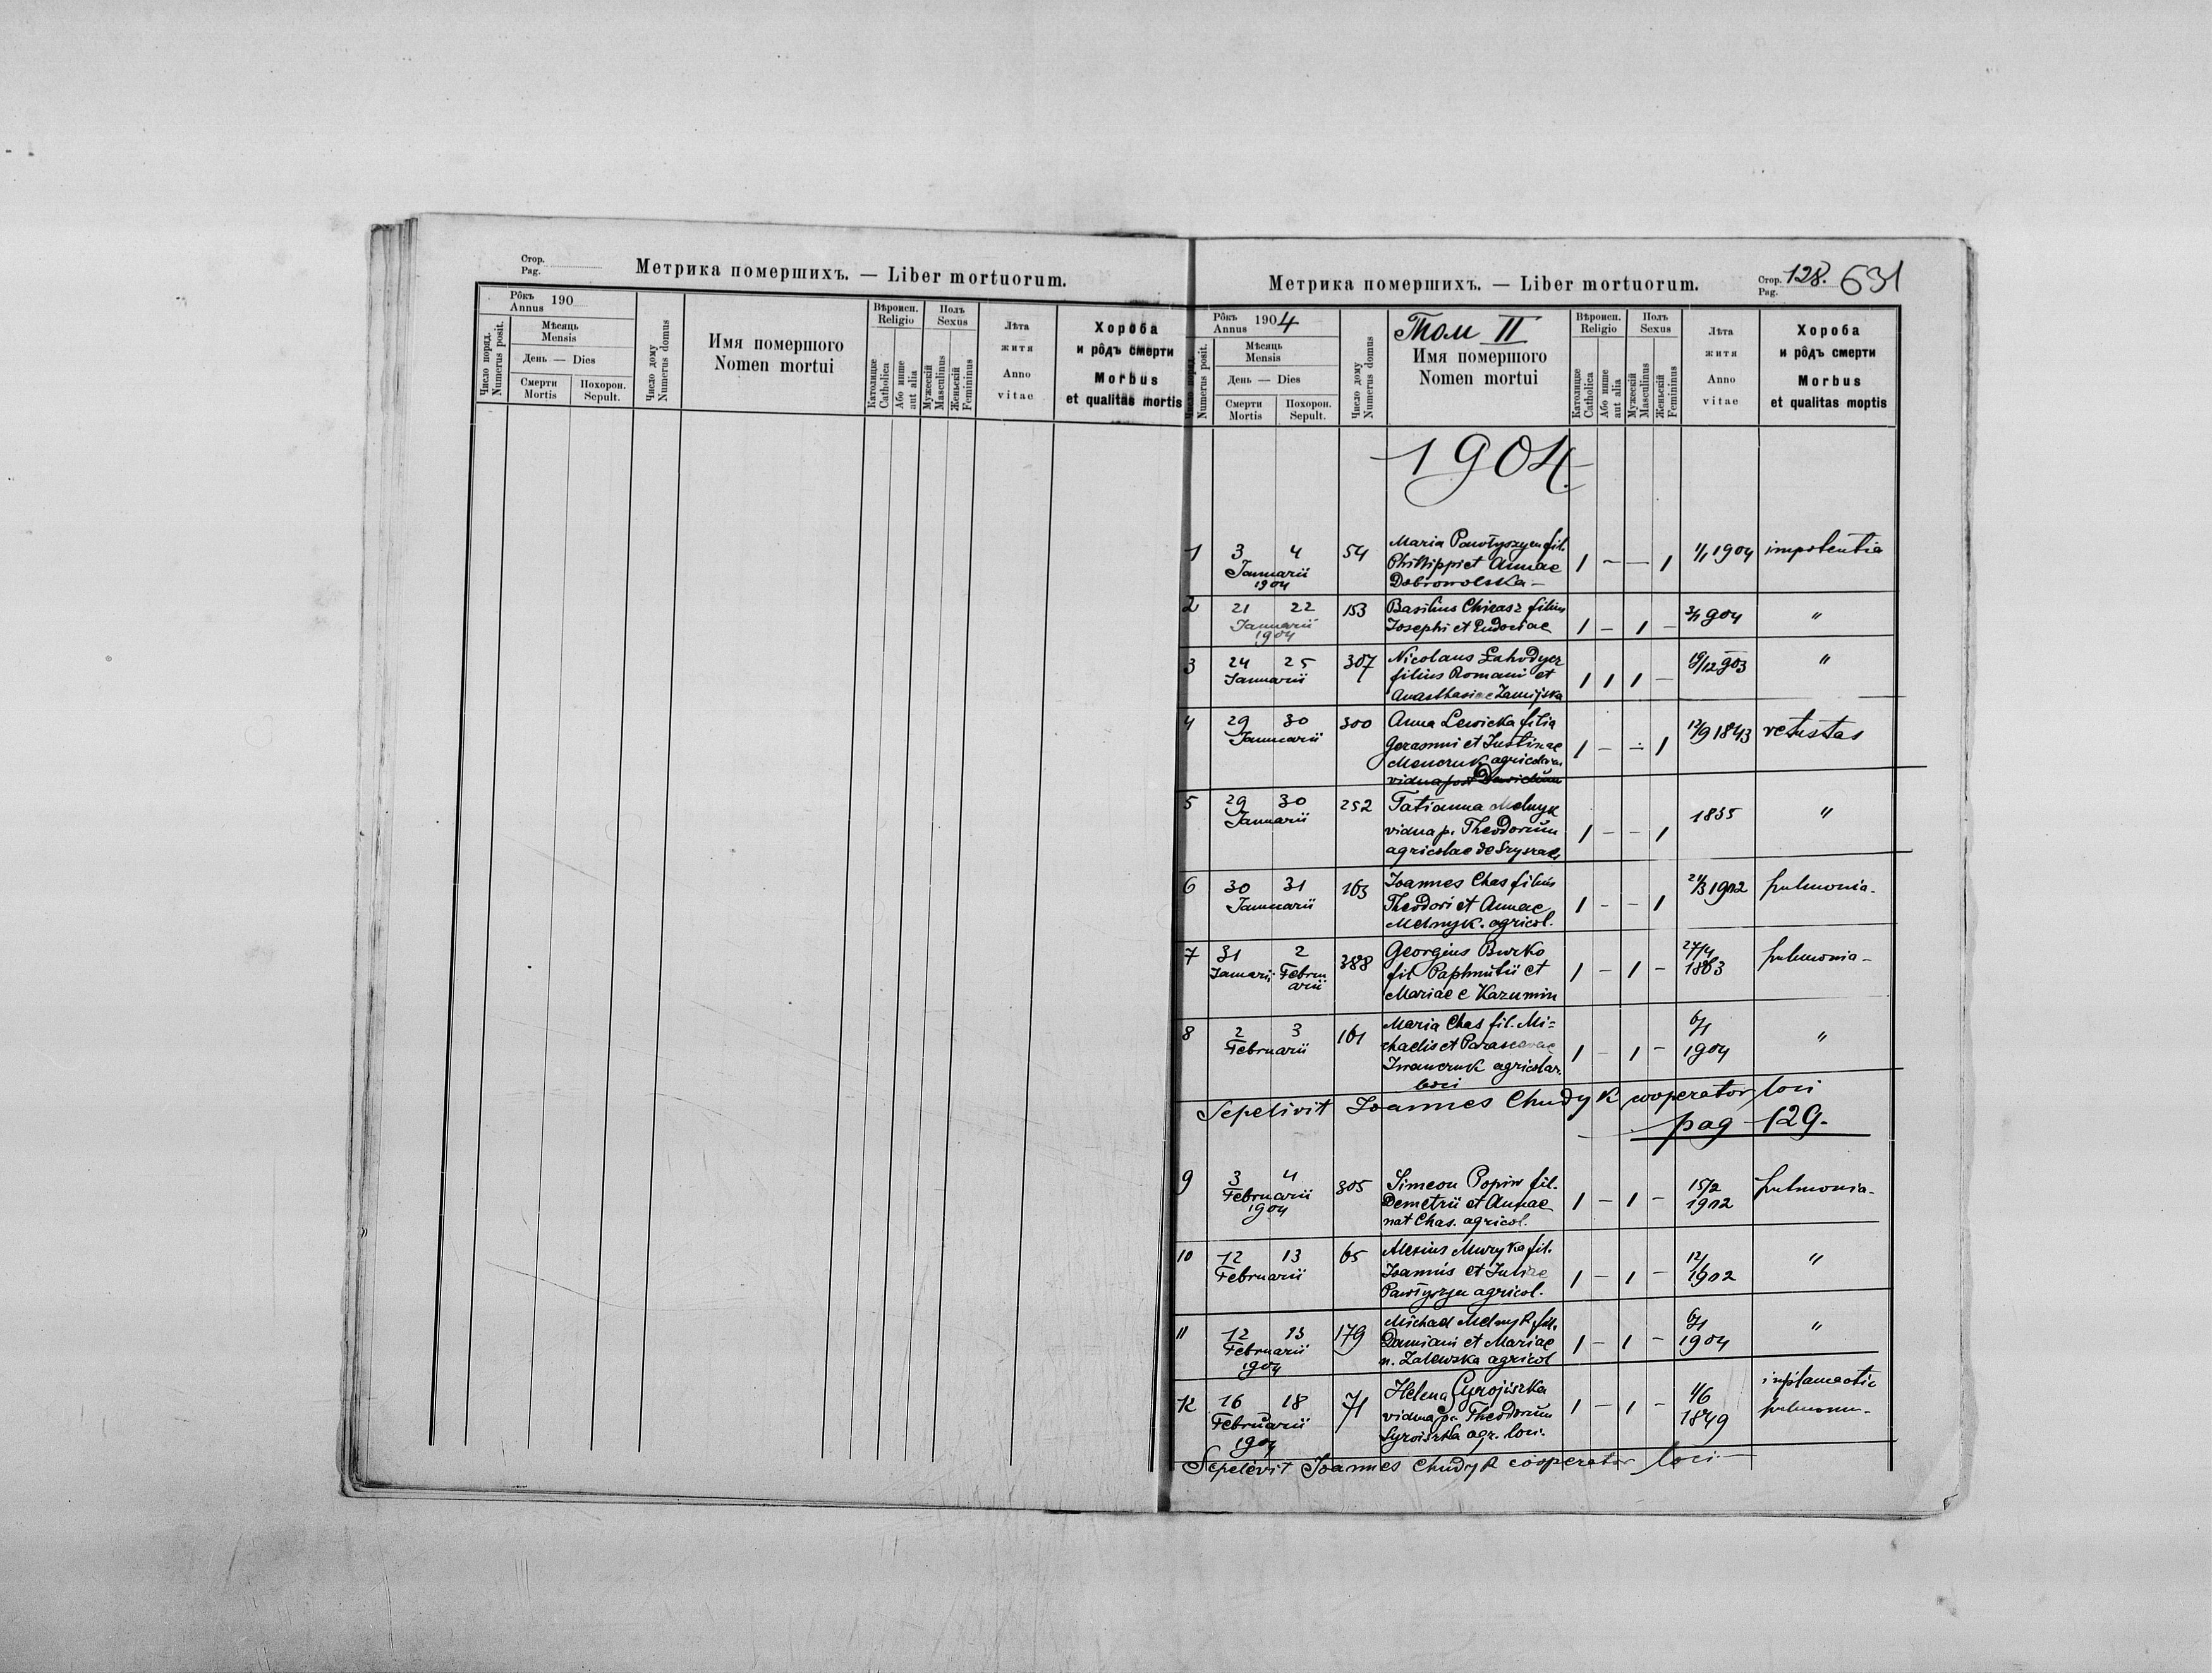 Стор.
Pag.
Метрика померших. — Liber mortuorum.
Рôкъ
Annus 190
Число поряд.
Numerus posit.
Мѣсяць
Mensis
День — Dies
Смерти
Mortis
Похорон.
Sepult.
Число дому
Numerus domus
Имя помершого
Nomen mortui
Вѣроисп.
Religio
Католицке
Catholica
Або инше
aut alia
Полъ
Sexus
Мужескій
Masculinus
Женьскій
Femininus
Лѣта
житя
Anno
vitae
Хороба
и рôдъ смерти
Morbus
et qualitas mortis
Метрика померших. — Liber mortuorum.
Стор.
Pag. 128. 631
Рôкъ
Annus 1904
Число поряд.
Numerus posit.
Мѣсяць
Mensis
День — Dies
Смерти
Mortis
Похорон.
Sepult.
Число дому
Numerus domus
Том II
Имя помершого
Nomen mortui
Вѣроисп.
Religio
Католицке
Catholica
Або инше
aut alia
Полъ
Sexus
Мужескій
Masculinus
Женьскій
Femininus
Лѣта
житя
Anno
vitae
Хороба
и рôдъ смерти
Morbus
et qualitas moptis
1904
1 3 4 Januarii 1904 54 Maria Pawłyszyn fil.
Phillippi et Annae
Dobrowolska —
1 – — 1 1/1 1904 impotentia
2 21 22 Januarii 1904 153 Basilius Chirasz filius
Josephi et Eudociae
1 – 1 – 904 "
3 24 25 Januarii 307 Nicolaus Lahodycz
filius Romani et
Anasthasiae
1 1 1 – 19/12 903 "
4 29 30 Januarii 300 Anna Lewicka filia
Gerasimi et Justinae
agricolar.
vidua post Davidum
1 – 1 12/9 1843 vetustas
5 29 30 Januarii 252 Tatianna Melnyk
vidua p. Theodorum
agricolae de
1 – – 1 1835 "
6 30 31 Januarii 163 Joannes Chas filius
Theodori et Annae
Melnyk. agricol.
1 – – 1 1902 pulmonia.
7 31 Januarii 2 Februarii 388 Georgius Burko
fil Paphnutii et
Mariae e Kazumin
1 – 1 – 27/4
pulmonia –
8 2 3 Februarii 161 Maria Chas fil. Mi=
chaelis et Parascevae
Iwanczuk agricolar.
loci
1 – 1 – 6/1
1904 "
Sepelivit Joannes Chudyk cooperator loci
pag 129.
9 3 4 Februarii 1904 305 Simeon Popiw fil.
Demetrii et Annae
nat Chas. agricol.
1 – 1 – 15/2
1902 pulmonia.
10 12 13 Februarii 65 Alexius Muryka fil.
Joannis et Juliae
Pawłyszyn agricol.
1 – 1 –
1902 "
11 12 13 Februarii 1904 179 Michael Melnyk fil.
Damiani et Mariae
n. Zalewska agricol
1 – 1 – 6/1
1904 "
12 16 18 Februarii 1904 71 Helena Syrojiszka
vidua p. Theodorum
Syroiszka agr. loci.
1 – 1 –
1849
Sepelivit Joannes Chudyk cooperator loci —